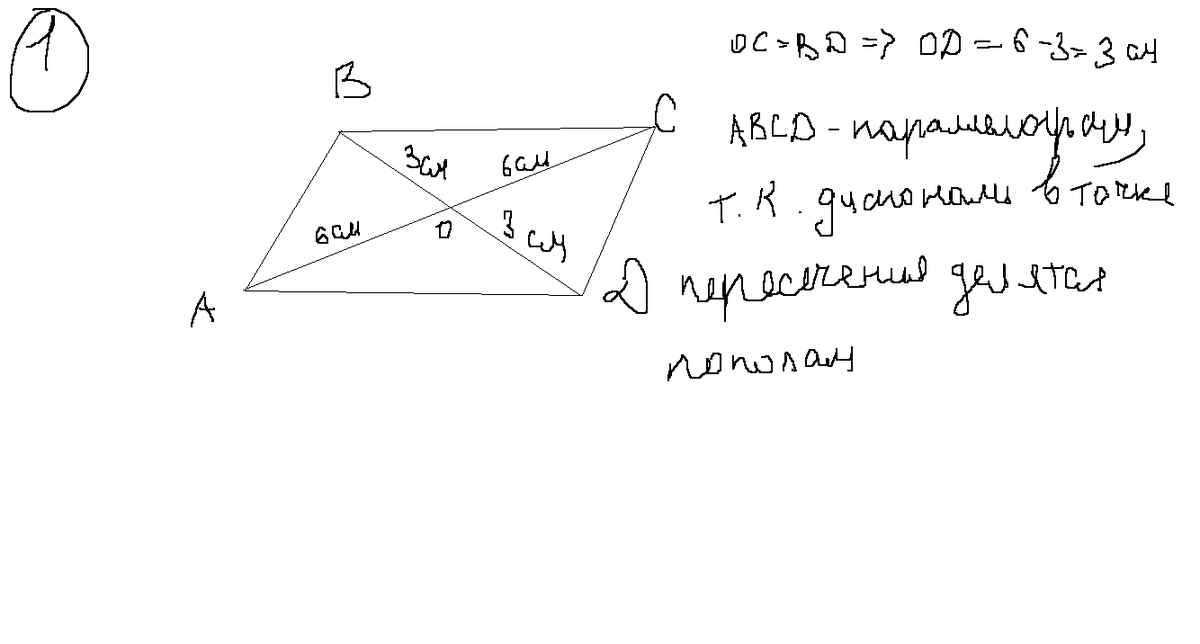 1
OC = BD => OD = 6 - 3 = 3 см
B
C
ABCD - параллелограм,
3см
6см
т.к. диагонали в точке
6см
O
3 см
A
D
пересечения делятся
пополам